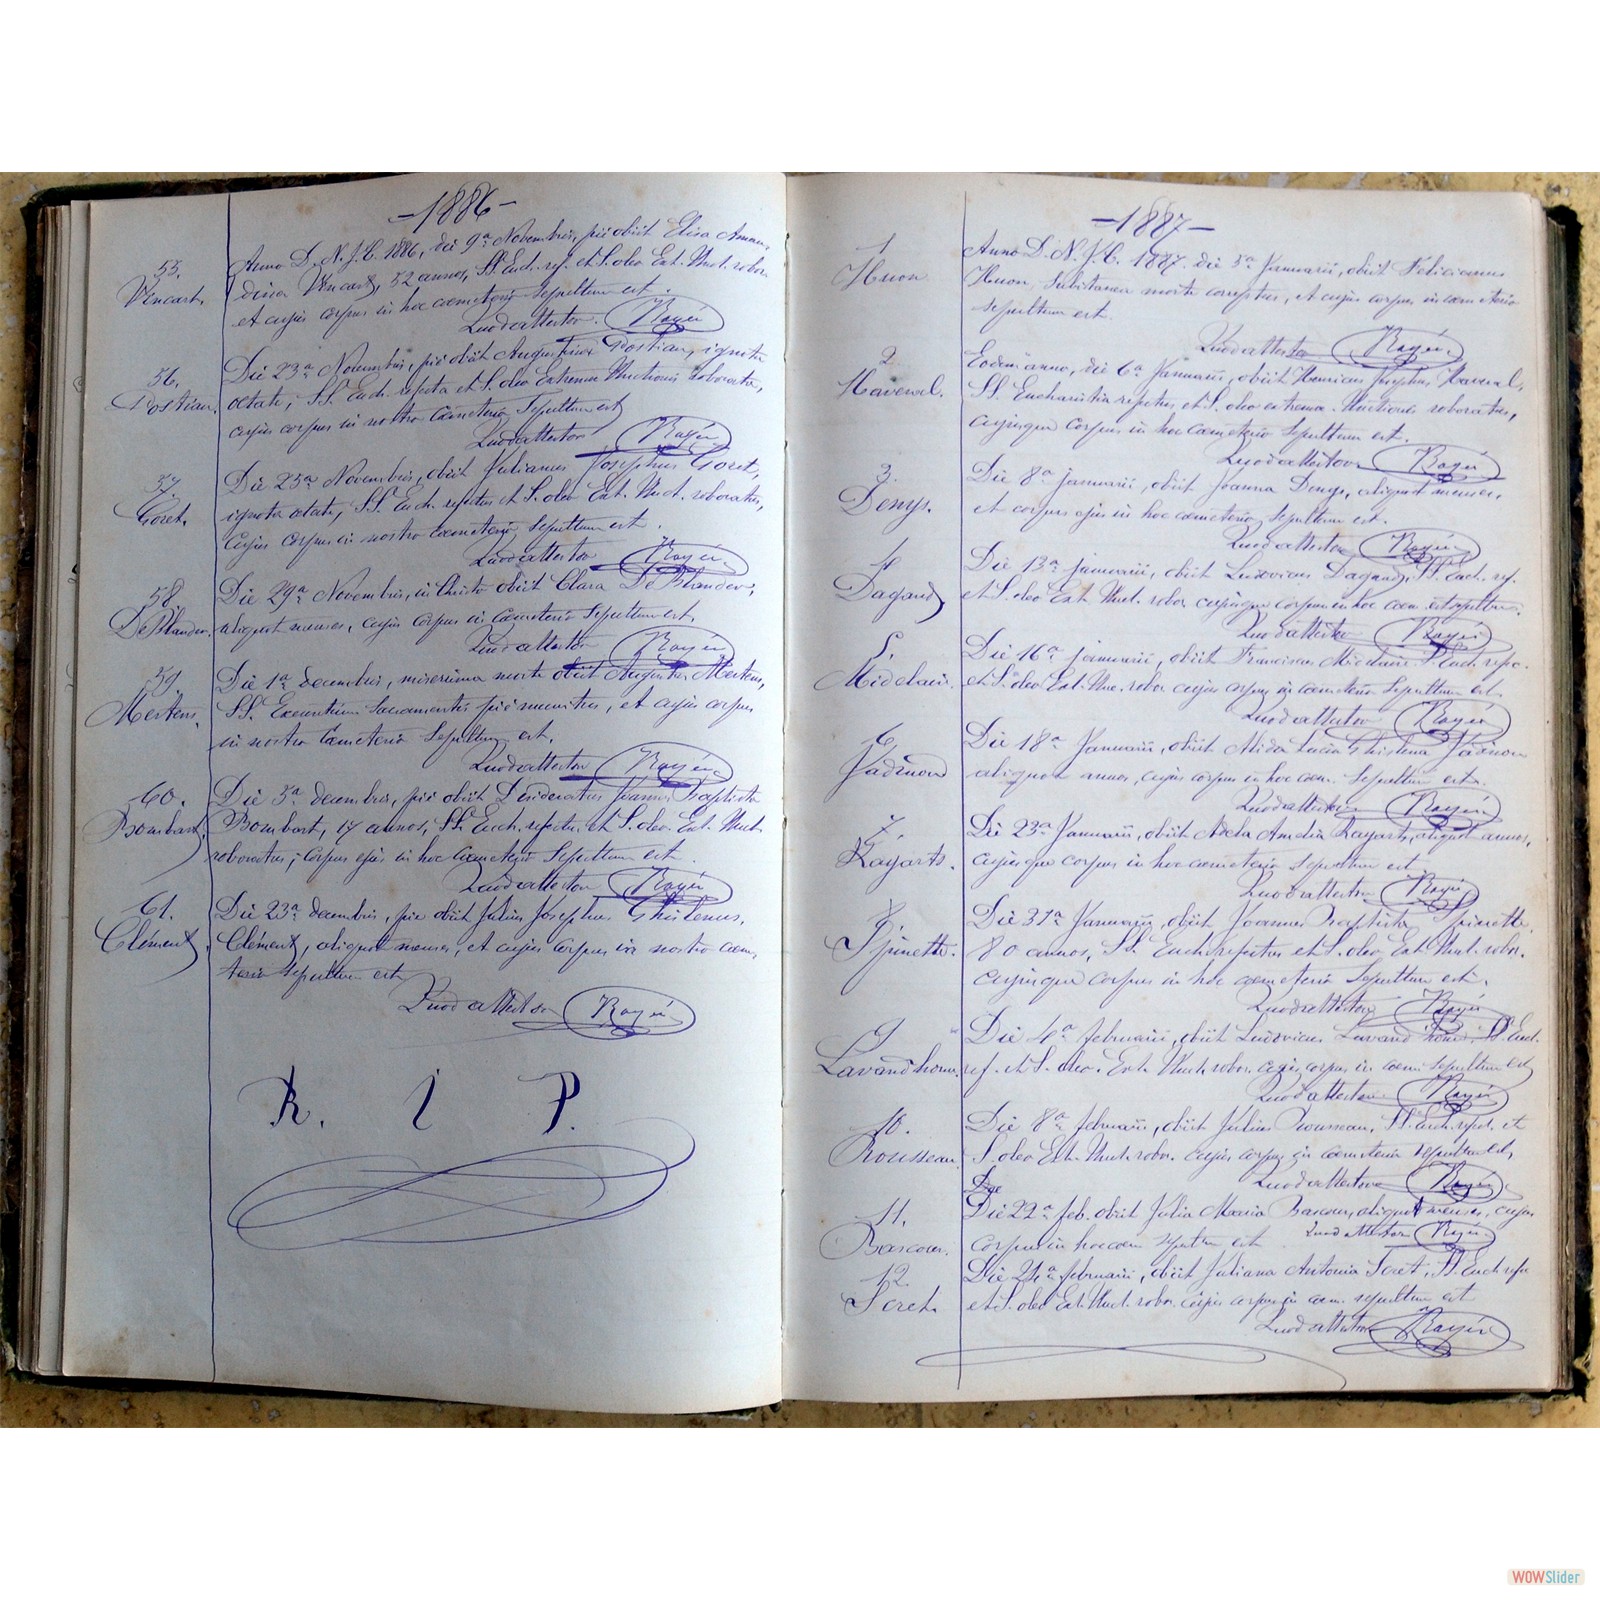 -1886-
55.
Vincart.
Anno D. N. J. C. 1886, die 9a Novembris, piè obiit Elisa Aman-
dina Vincart, 52 annos, SS. Euch. ref. et S. oleo Ext. Unct. robor.
et cujus corpus in hoc cœmeterio sepultum est.
Quod attestor. Rayée
56.
Postiau.
Die 23a Novembris, piè obiit Augustinus Postiau, ignota
ætate, SS. Euch. refecta et S. oleo Extremæ Unctionis roborata,
cujus corpus in nostro Cœmeterio Sepultum est
Quod attestor Rayée
57.
Goret.
Die 25a Novembris, obiit Julianus Josephus Goret,
ignota ætate, SS. Euch. refectus et S. oleo Ext. Unct. roboratus,
Cujus corpus in nostro Cœmeterio Sepultum est.
Quod attestor Rayée
58
De Blander.
Die 29a Novembris, in Christo obiit Clara De Blander,
aliquot menses, cujus corpus in Cœmeterio Sepultum est,
Quod attestor Rayée
59.
Mertens.
Die 1a decembris, miserrima morte obiit Mertens,
SS. Sacramentis piè munitus, et cujus corpus
in nostro Cœmeterio Sepultum est.
Quod attestor Rayée
60.
Bombart.
Die 3a decembris, piè obiit Desideratus Joannes Baptista
Bombart, 17 annos, SS. Euch. refectus et S. oleo Ext. Unct.
roboratus; corpus ejus in hoc Cœmeterio Sepultum est.
Quod attestor Rayée
61.
Clément.
Die 23a decembris, piè obiit Julius Josephus Ghislenus,
Clément, aliquot menses, et cujus corpus in nostro cœme-
terio sepultum est
Quod attestor Rayée
R. I P.
-1887-
1
Huon.
Anno D. N. J. C. 1887. die 5a Januarii, obiit Felicianus
Huon, Subitanea morte correptus, et cujus corpus in cœmeterio
sepultum est.
Quod attestor Rayée
2.
Haverval.
Eodem anno, die 6a Januarii, obiit Henricus Josephus Haverval,
SS. Eucharistia refectus et S. oleo extremæ Unctionis roboratus,
cujusque corpus in hoc cœmeterio Sepultum est.
Quod attestor Rayée
3.
Denys.
Die 8a Januarii, obiit Joanna Denys, aliquot menses,
et corpus ejus in hoc cœmeterio Sepultum est.
Quod attestor Rayée
4
Dagand
Die 13a januarii, obiit Ludovicus Dagand, SS. Euch. ref.
et S. oleo Ext. Unct. robor. cujusque corpus in hoc cœm. est sepultum.
Quod attestor Rayée
5.
Midelair.
Die 16a januarii, obiit Franciscus SS. Euch. refec.
et S. oleo Ext. Unc. robor cujus corpus in cœmeterio Sepultum est
Quod attestor Rayée
6.
Die 18a Januarii, obiit Alida Lucia Ghislena
aliquot annos, cujus corpus in hoc cœm. Sepultum est.
Quod attestor Rayée
7.
Kayarts.
Die 23a Januarii, obiit Adela Amelia Kayarts, aliquot annos,
cujusque corpus in hoc cœmeterio Sepultum est
Quod attestor Rayée
8
Spinette.
Die 31a Januarii, obiit Joannes Baptista Spinette,
80 annos, SS. Euch. refectus et S. oleo Ext. Unct. robor.
cujusque corpus in hoc cœmeterio Sepultum est.
Quod attestor Rayée
9
Lavandhomme.
Die 4a februarii, obiit Ludovicus Lavandhomme, SS. Euch.
ref. et S. oleo. Ext. Unct. robor. cujus corpus in cœm. sepultum est
Quod attestor Rayée
10.
Rousseau.
Die 8a februarii, obiit Julius Rousseau, SS. Euch. refect. et
S. oleo Ext. Unct. robor. cujus corpus in cœmeterio sepultum est,
Quod attestor Rayée
11.
Bascour.
Die 22a feb. obiit Julia Maria Bascour, aliquot menses, cujus
corpus in hoc cœm sepultum est Quod attestor Rayée
12.
Soret.
Die 24a februarii, obiit Juliana Antonia Soret, SS. Euch. refec
et S. oleo Ext. Unct. robor. cujus corpus in cœm. sepultum est
Quod attestor Rayée
WOWSlider